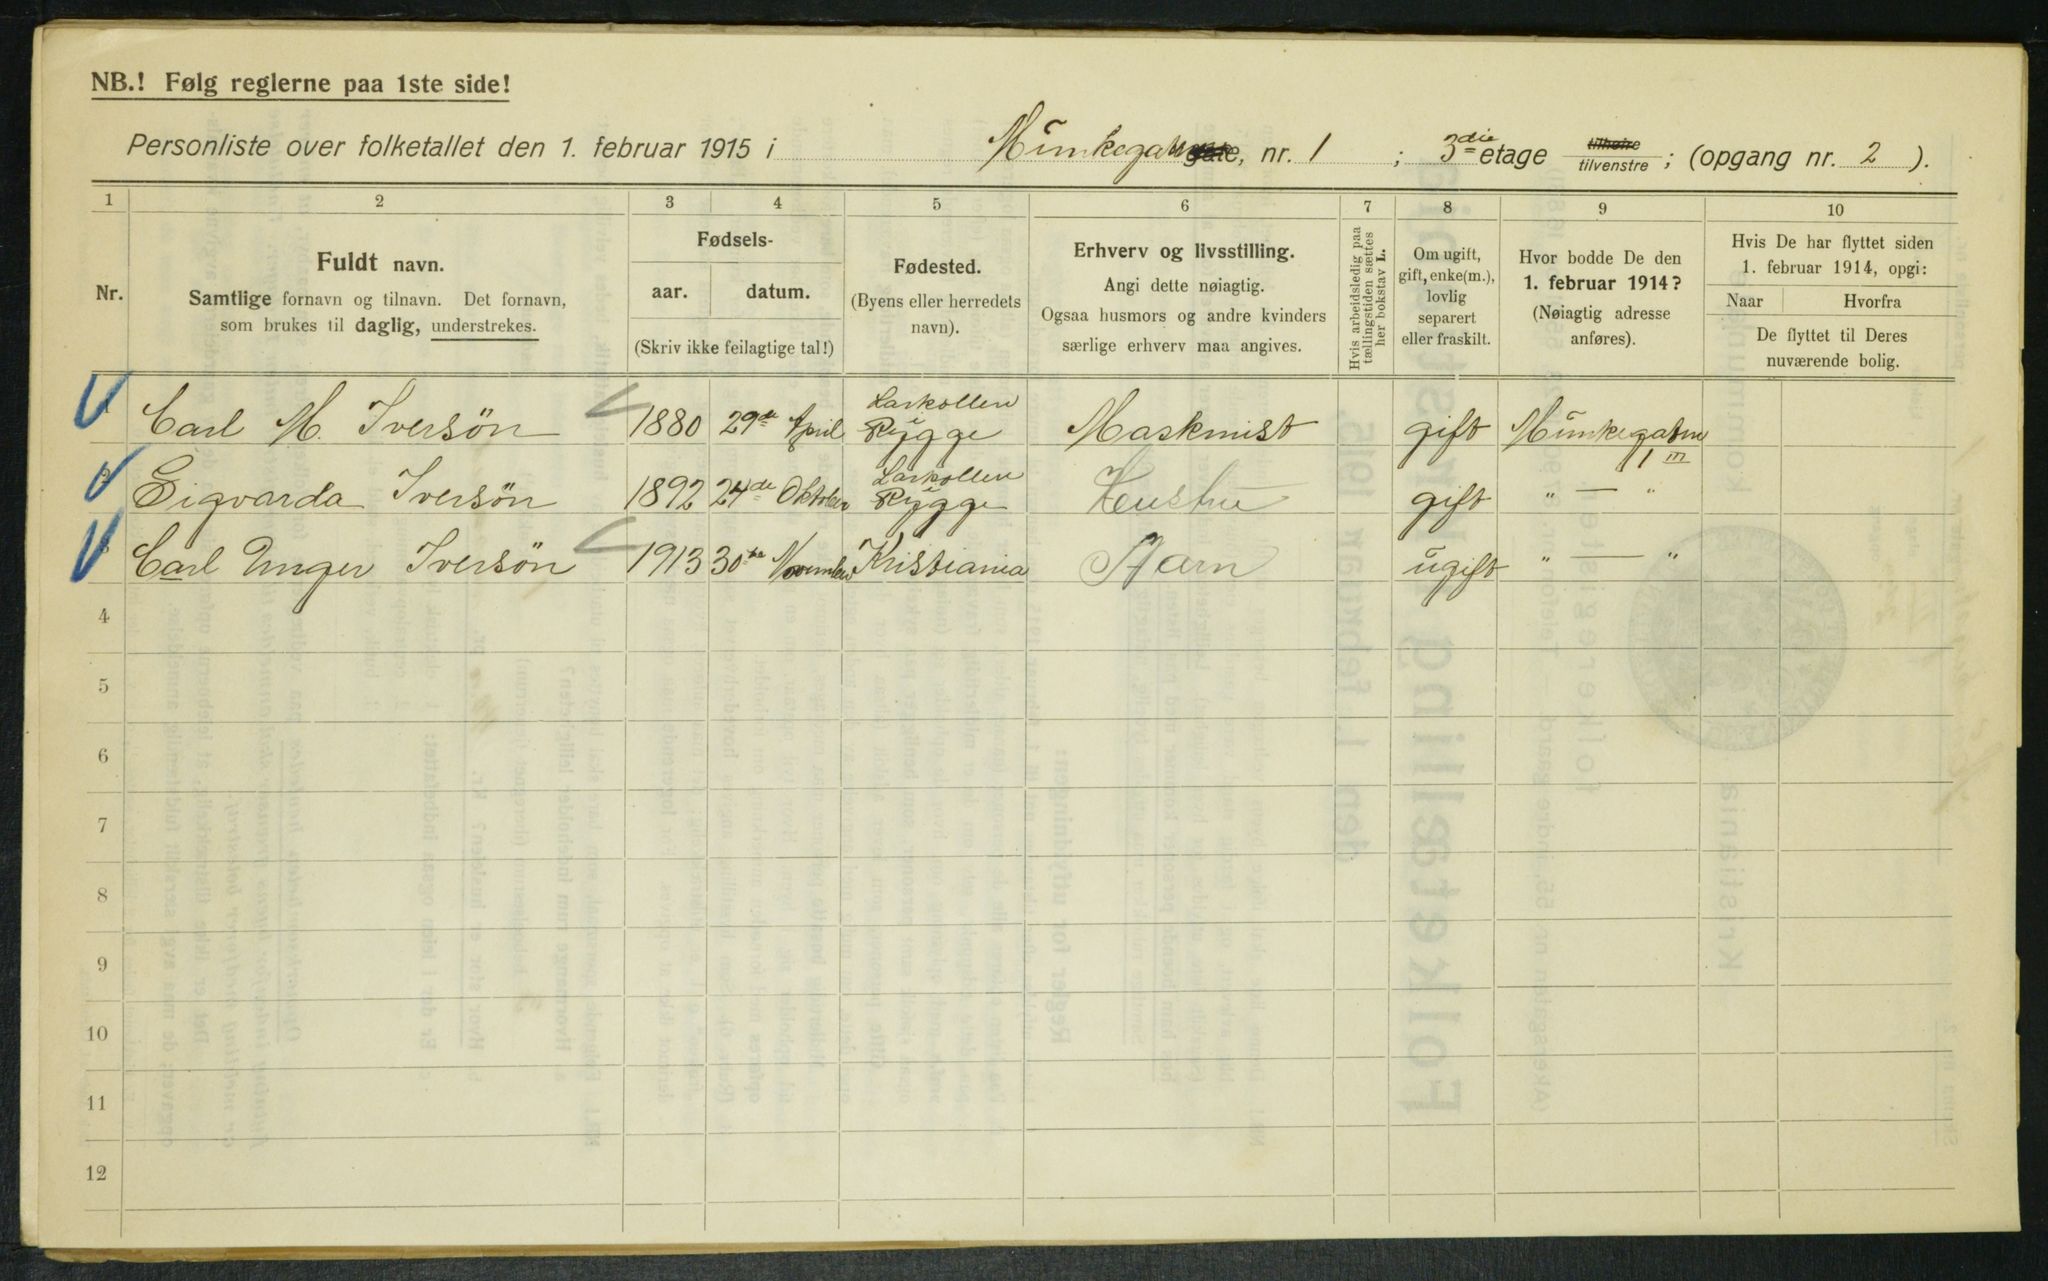 NB.! Følg reglerne paa 1ste side!
Personliste over folketallet den 1. februar 1915 i Munkegaten gate, nr. 1 ; 3die etage tilhøire tilvenstre ; (opgang nr. 2 ).
1 2 3 4 5 6 7 8 9 10
Nr.
Fuldt navn.
Samtlige fornavn og tilnavn. Det fornavn,
som brukes til daglig, understrekes.
Fødsels-
aar. datum.
(Skriv ikke feilagtige tal!)
Fødested.
(Byens eller herredets
navn).
Erhverv og livsstilling.
Angi dette nøiagtig.
Ogsaa husmors og andre kvinders
særlige erhverv maa angives.
Hvis arbeidsledig paa
tællingstiden sættes
her bokstav L.
Om ugift,
gift, enke(m.),
lovlig
separert
eller fraskilt.
Hvor bodde De den
1. februar 1914?
(Nøiagtig adresse
anføres).
Hvis De har flyttet siden
1. februar 1914, opgi:
Naar Hvorfra
De flyttet til Deres
nuværende bolig.
1 Carl M. Iversøn 1880 29de April Larkollen Rygge Maskinist gift Munkegaten 1 III
2 Sigvarda Iversøn 1892 24de Oktober Larkollen Rygge Hustru gift " — "
3 Carl Unger Iversøn 1913 30te November Kristiania Barn ugift " — "
4
5
6
7
8
9
10
11
12